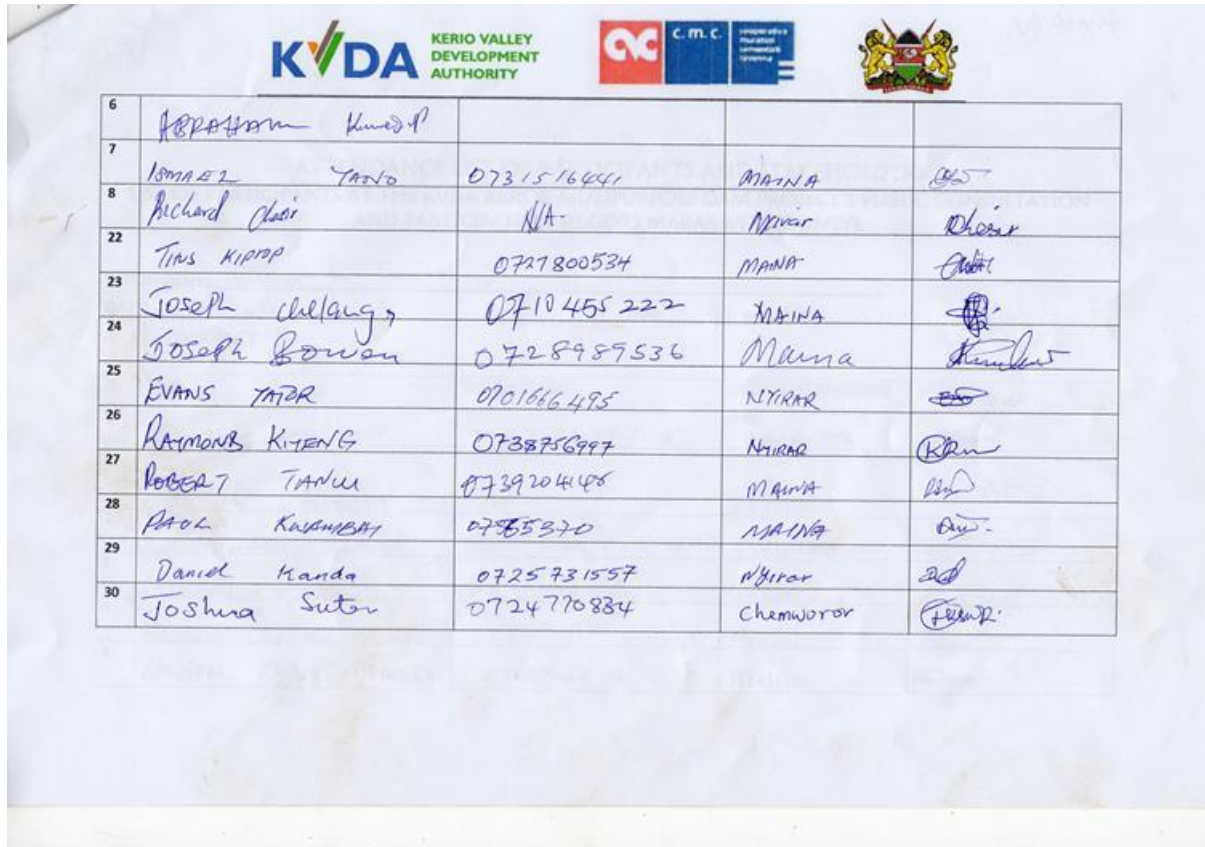 KVDA KERIO VALLEY
DEVELOPMENT
AUTHORITY
c. m. c.
6 ABRAHAM
7 ISMAEL YANO 0731516441 MAINA
8 Richard N/A
22 TITUS KIPTOP 0727800534 MAINA
23 Joseph chelang 0710455222 MAINA
24 JOSEPH Bowen 0728989536 Maina
25 EVANS YATOR 0701666495 NYIRAR
26 RAYMOND KITENG 0738756997 NYIRAR
27 ROBERT TANUI MAINA
28 PAUL MAINA
29 Daniel Kanda 0725731557 Nyirar
30 Joshua Suter 0724770834 Chemworor